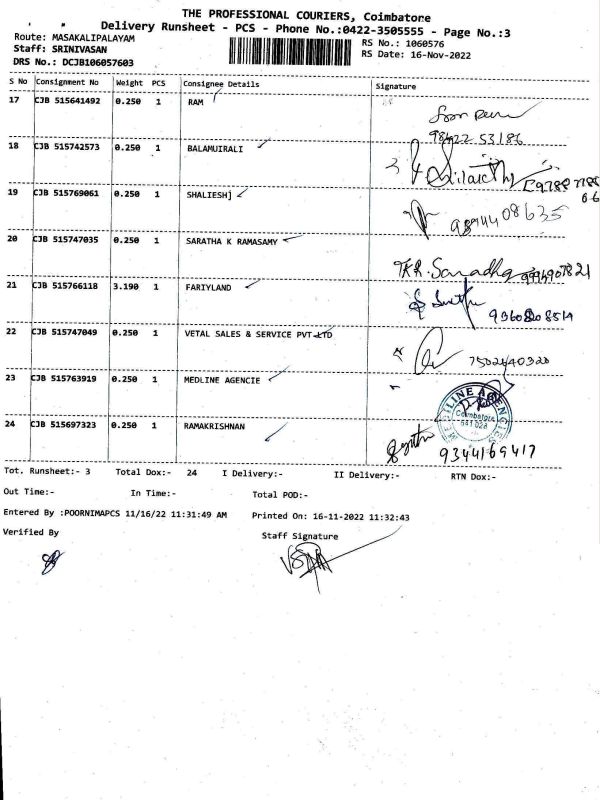 THE PROFESSIONAL COURIERS, Coimbatore
Delivery Runsheet - PCS - Phone No.:0422-3505555 - Page No.:3
Route: MASAKALIPALAYAM
Staff: SRINIVASAN
DRS No.: DCJB106057603
RS No.: 1060576
RS Date: 16-Nov-2022
S No Consignment No Weight PCS Consignee Details Signature
17 CJB 515641492 0.250 1 RAM
98422 53186
18 CJB 515742573 0.250 1 BALAMUIRALI
19 CJB 515769061 0.250 1 SHALIESH]
9894408635
20 CJB 515747035 0.250 1 SARATHA K RAMASAMY
TKR. Saradha 9994907821
21 CJB 515766118 3.190 1 FARIYLAND
22 CJB 515747049 0.250 1 VETAL SALES & SERVICE PVT LTD
7502640320
23 CJB 515763919 0.250 1 MEDLINE AGENCIE
Coimbatore
641028
24 CJB 515697323 0.250 1 RAMAKRISHNAN
9344169417
Tot. Runsheet:- 3 Total Dox:- 24 I Delivery:- II Delivery:- RTN Dox:-
Out Time:- In Time:- Total POD:-
Entered By :POORNIMAPCS 11/16/22 11:31:49 AM Printed On: 16-11-2022 11:32:43
Verified By Staff Signature